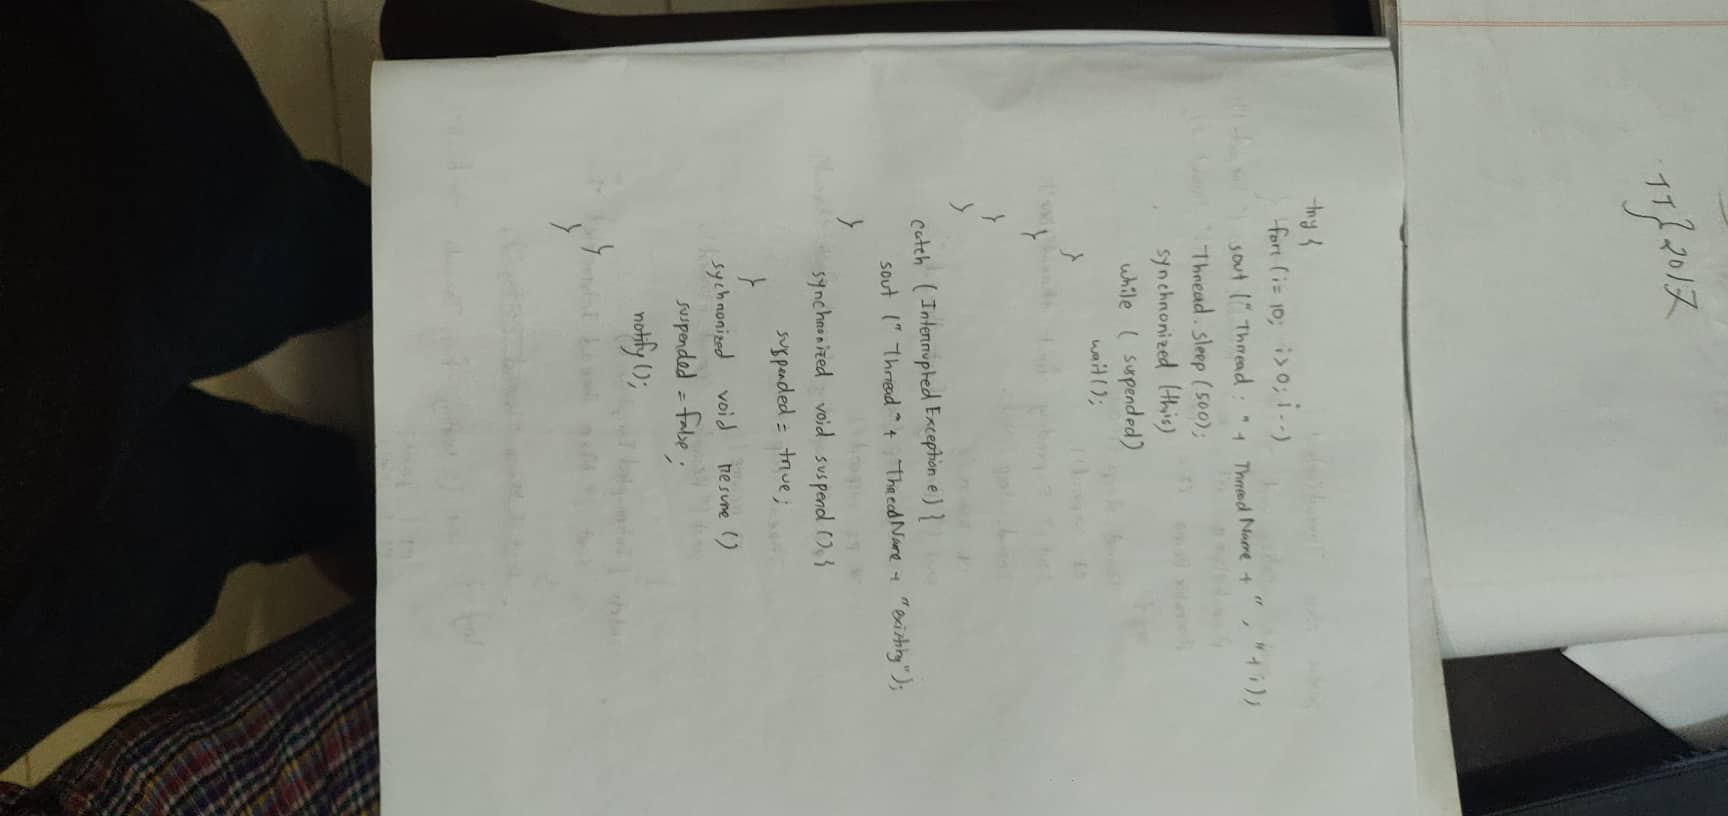 try {
for (i = 10; i > 0; i--)
sout ("Thread : " + ThreadName + " , " + i));
Thread.sleep (500);
synchronized (this)
while ( suspended)
wait();
}
}
}
}
catch ( Interrupted Exception e)) {
sout (" Thread " + ThreedName + "existing");
}
synchronized void suspend () {
suspended = true;
}
sychronized void resume ()
suspended = false;
notify();
}
}